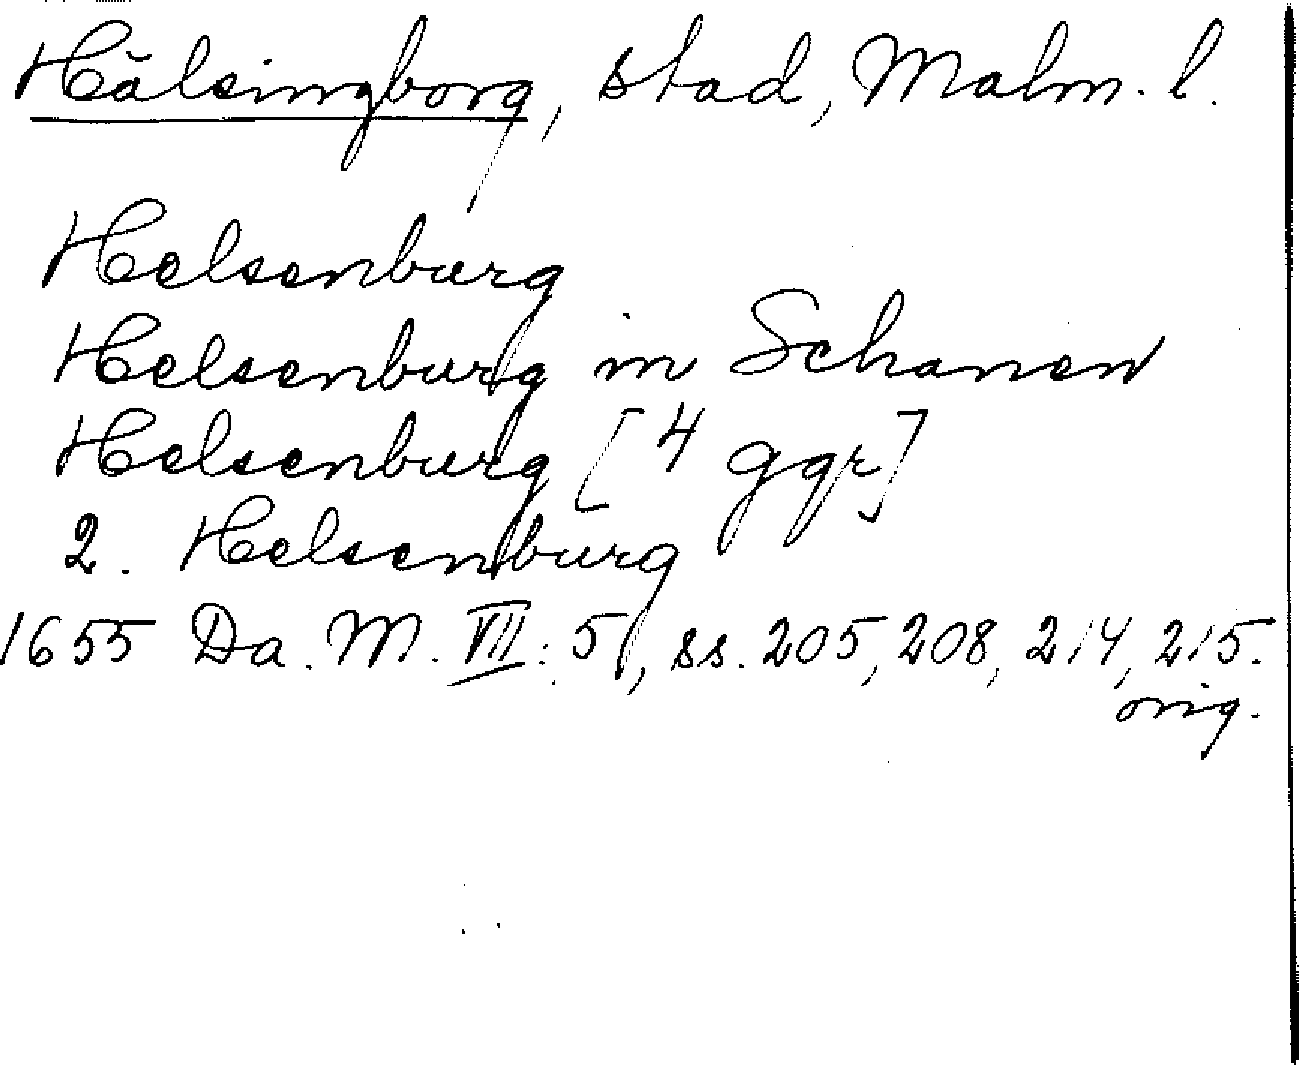 Hälsingborg, stad, Malm. l.
Helsenburg
Helsenburg in Schanen
Helsenburg [4 ggr]
2. Helsenburg
1655 Da. M. VII: 5, ss. 205, 208, 214, 215.
orig.